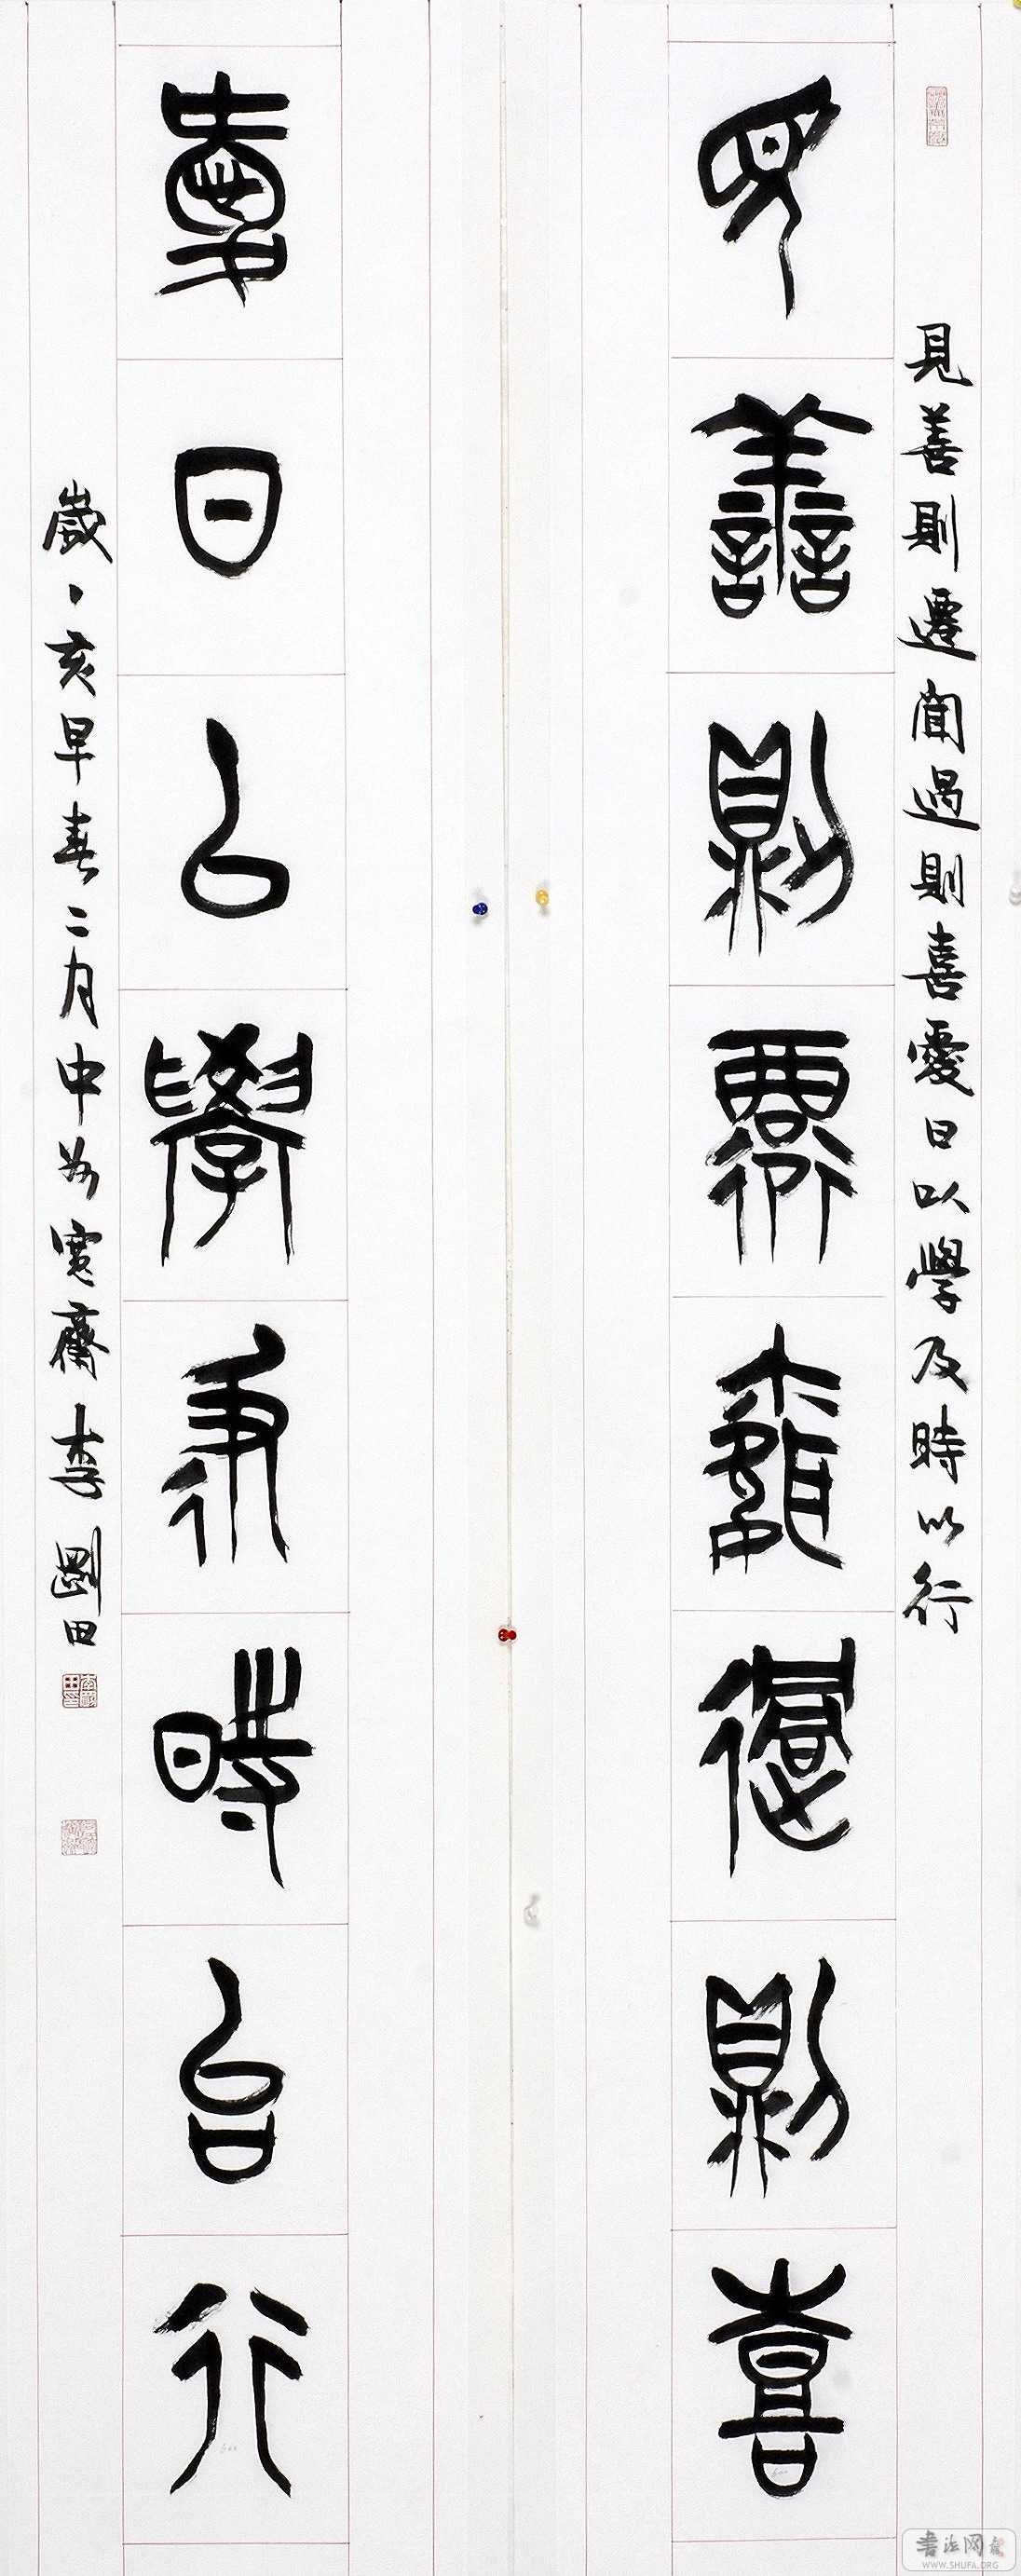 見善則遷聞過則喜愛日以學及時以行
見善則遷聞過則喜
愛日以學及時以行
歲丶亥早春二月中州寬齋李剛田
書法网
WWW.SHUFA.ORG